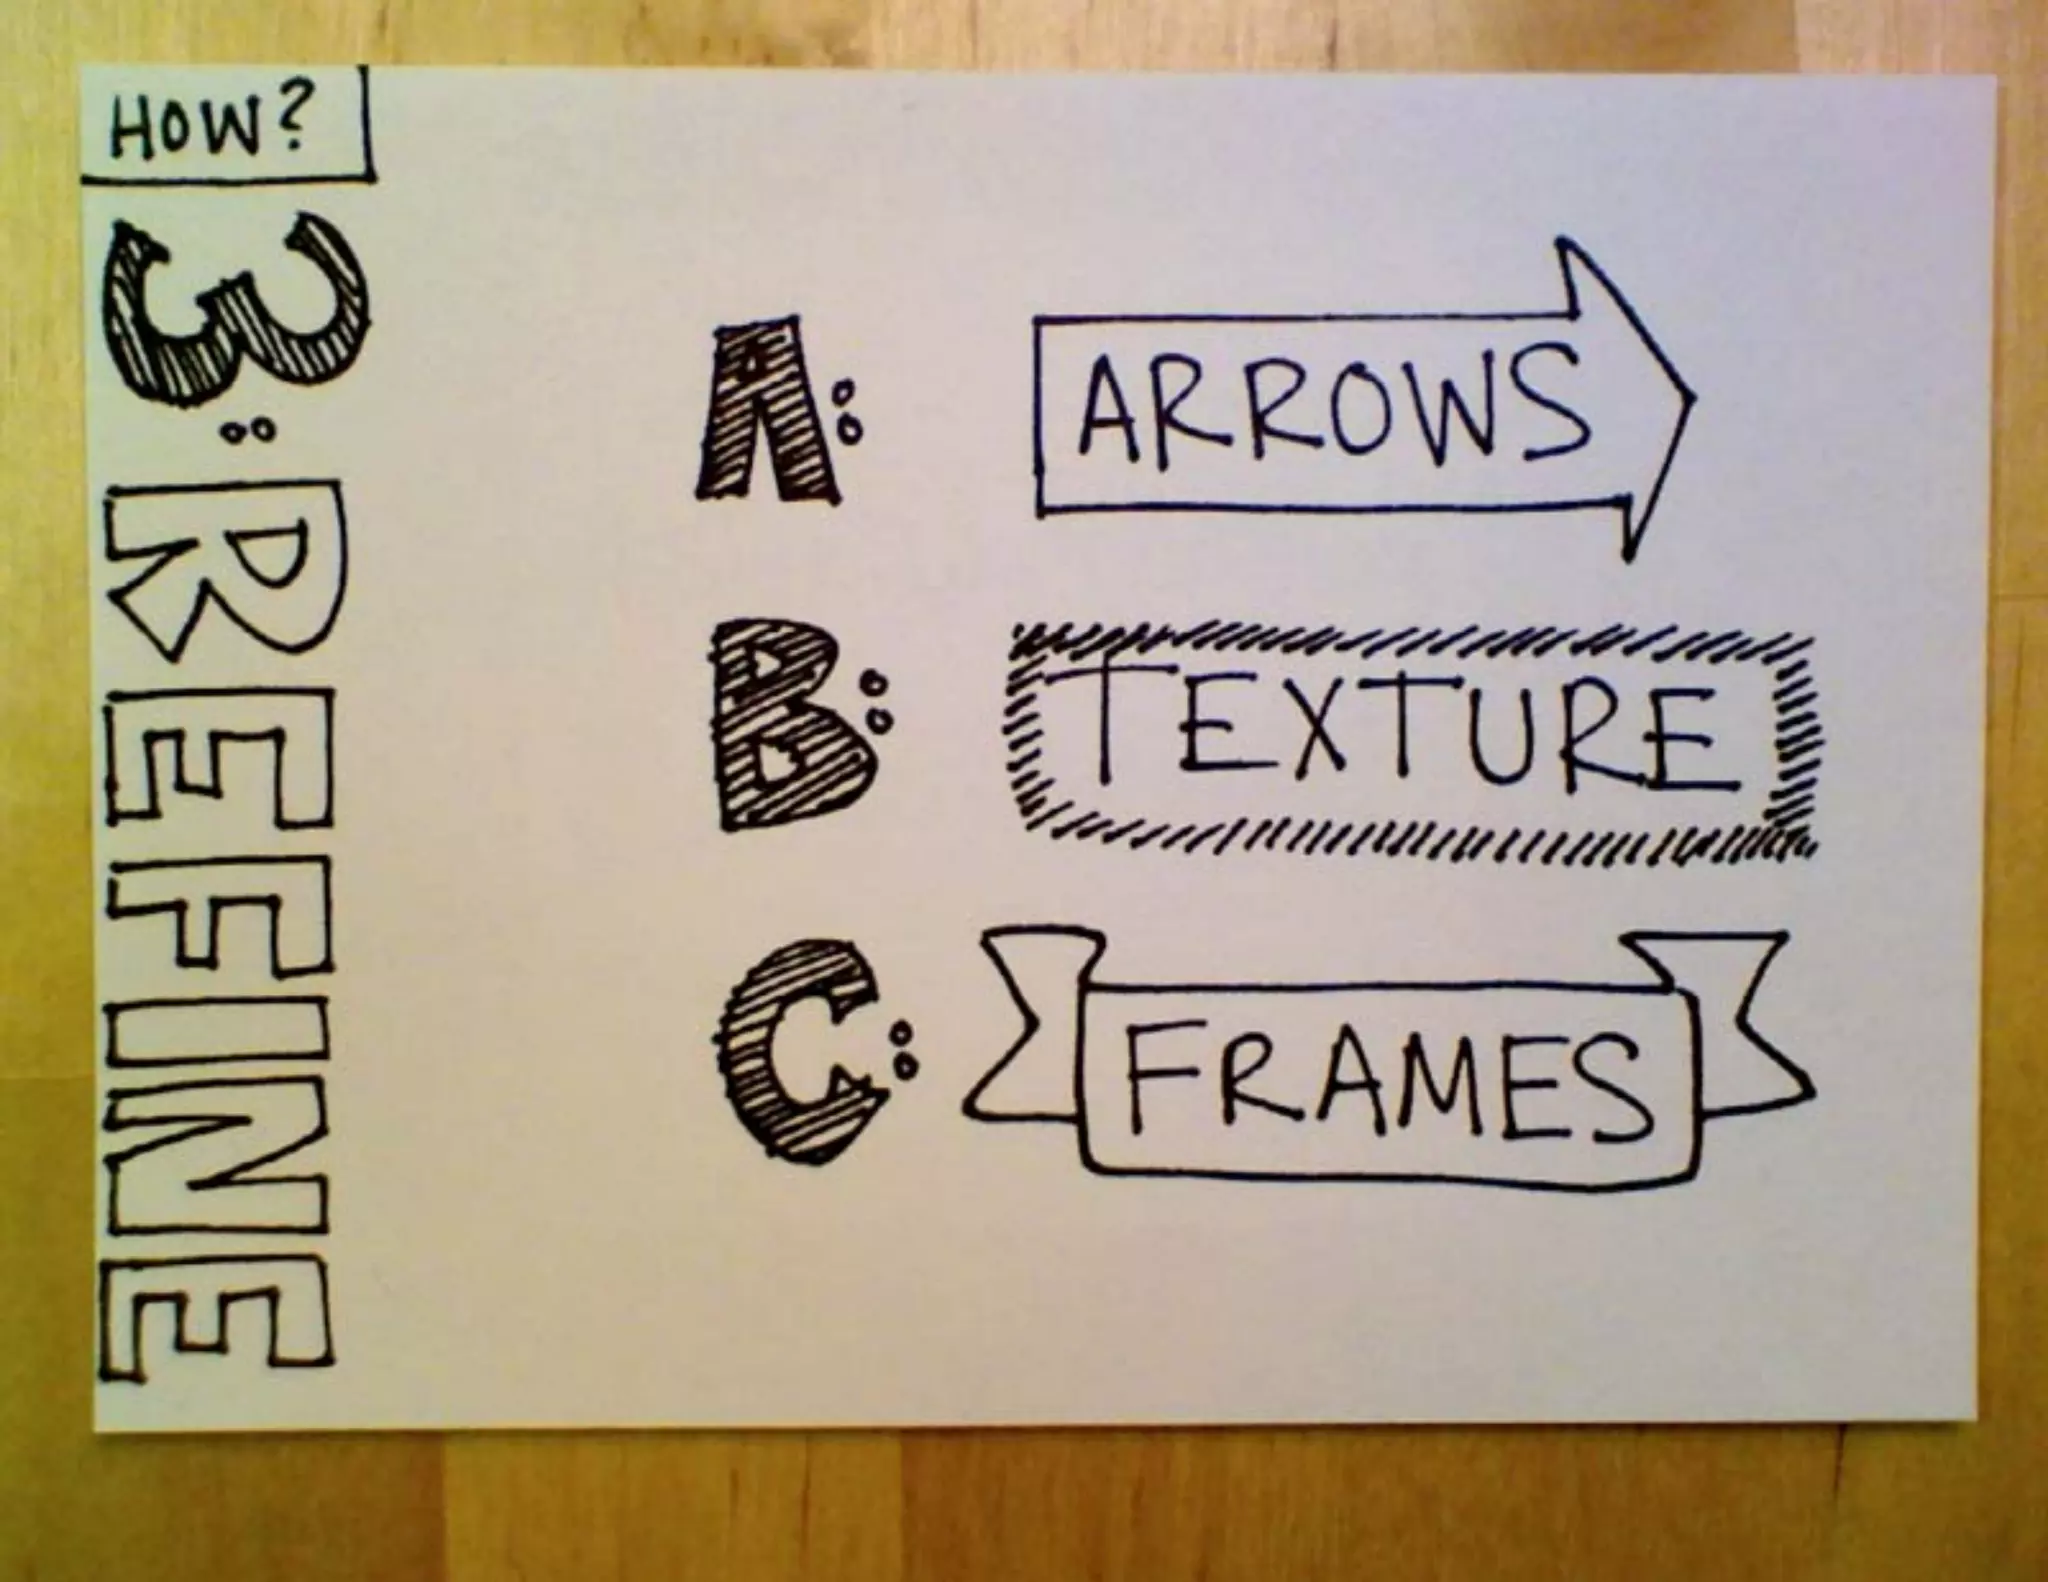 HOW?
3: REFINE
A: ARROWS
B: TEXTURE
C: FRAMES